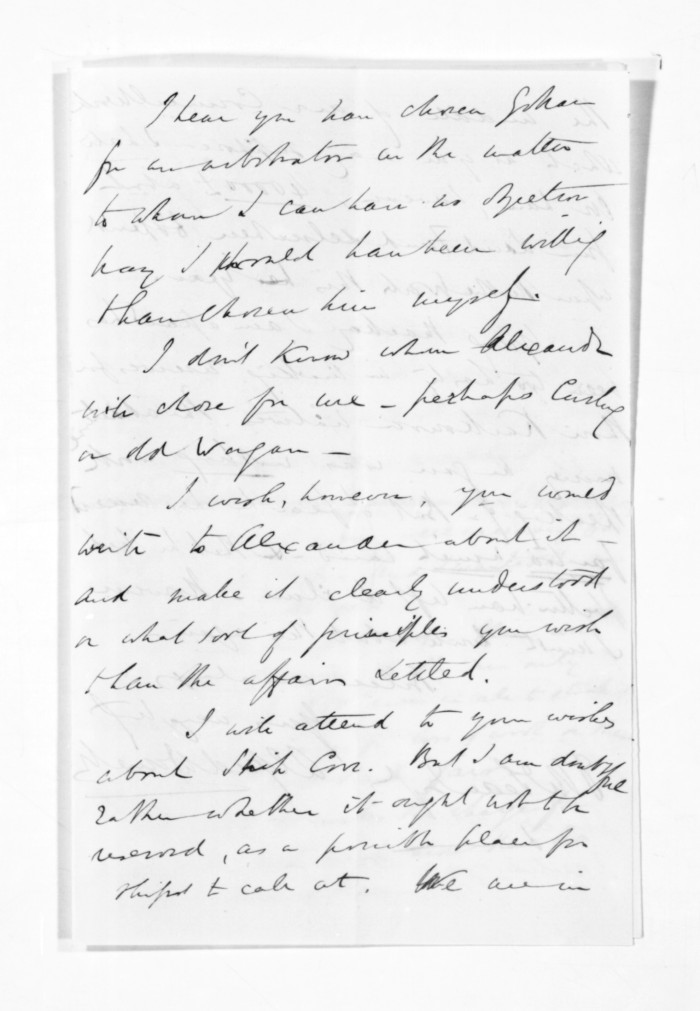 I hear you have chosen
for an arbitrator in the matter
to whom I can have no objection
nay I should have been willing
t'have chosen him myself.
I don't know whom Alexander
will chose for me – perhaps
or old
I wish, however, you would
write to Alexander about it –
and make it clearly understood
on what sort of principles you wish
t'have the affairs settled.
I will attend to your wishes
about Cove. But I am doubtful
rather whether it ought not t' be
reserved, as a possible place for
ships t' call at. We are in